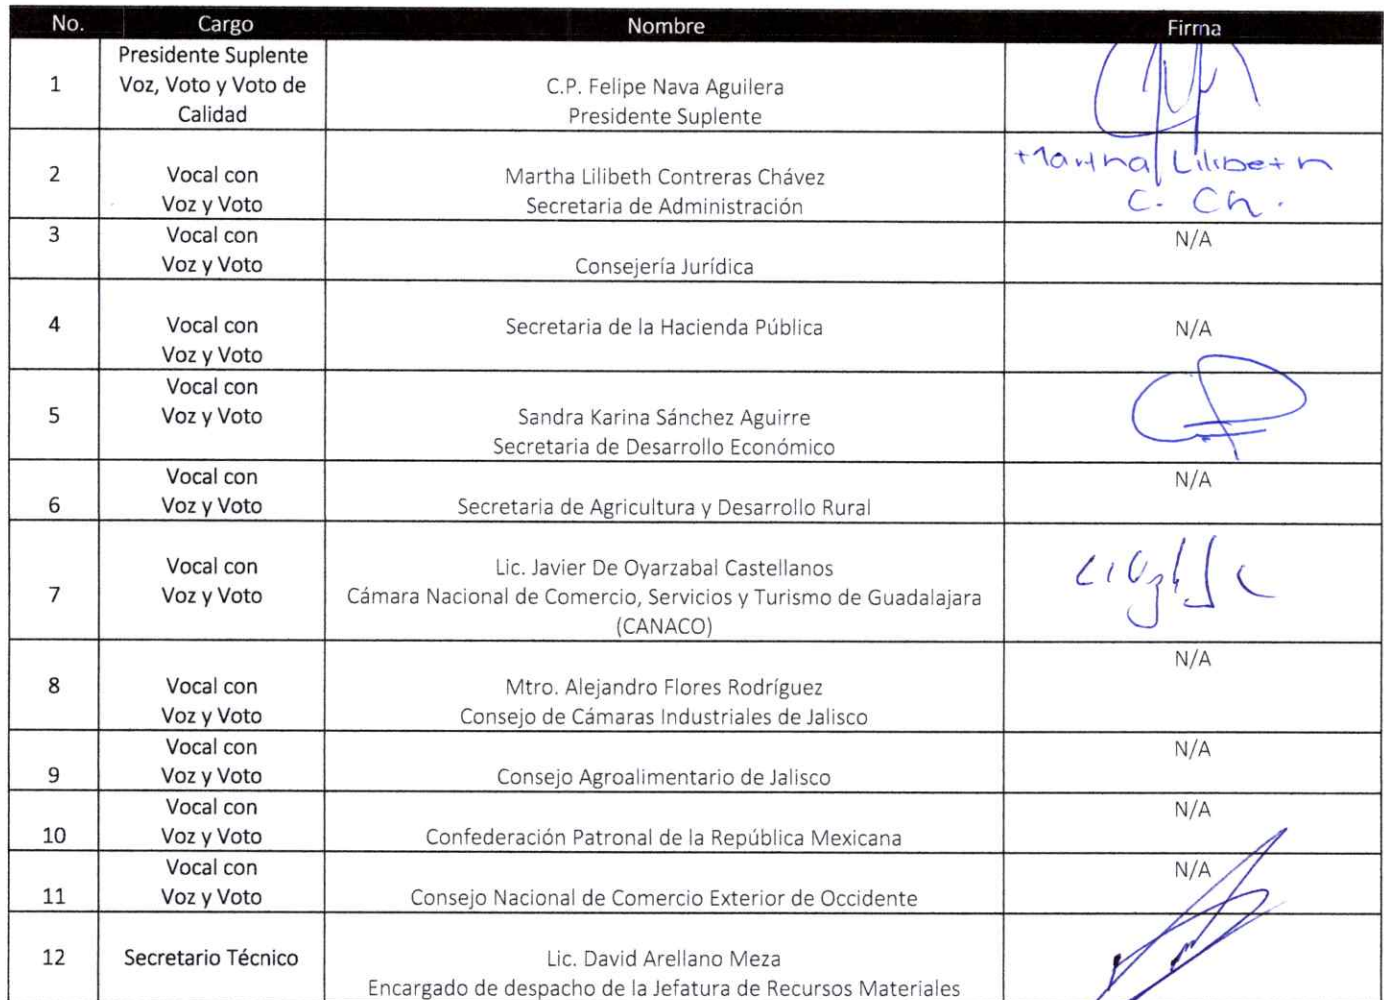 No. Cargo Nombre Firma
Presidente Suplente
1 Voz, Voto y Voto de C.P. Felipe Nava Aguilera
Calidad Presidente Suplente
Martha Lilibeth
2 Vocal con Martha Lilibeth Contreras Chávez
Voz y Voto Secretaria de Administración C. Ch.
3 Vocal con N/A
Voz y Voto Consejería Jurídica
4 Vocal con Secretaria de la Hacienda Pública N/A
Voz y Voto
Vocal con
5 Voz y Voto Sandra Karina Sánchez Aguirre
Secretaria de Desarrollo Económico
Vocal con N/A
6 Voz y Voto Secretaria de Agricultura y Desarrollo Rural
Vocal con Lic. Javier De Oyarzabal Castellanos
7 Voz y Voto Cámara Nacional de Comercio, Servicios y Turismo de Guadalajara
(CANACO)
N/A
8 Vocal con Mtro. Alejandro Flores Rodríguez
Voz y Voto Consejo de Cámaras Industriales de Jalisco
Vocal con N/A
9 Voz y Voto Consejo Agroalimentario de Jalisco
Vocal con N/A
10 Voz y Voto Confederación Patronal de la República Mexicana
Vocal con N/A
11 Voz y Voto Consejo Nacional de Comercio Exterior de Occidente
12 Secretario Técnico Lic. David Arellano Meza
Encargado de despacho de la Jefatura de Recursos Materiales